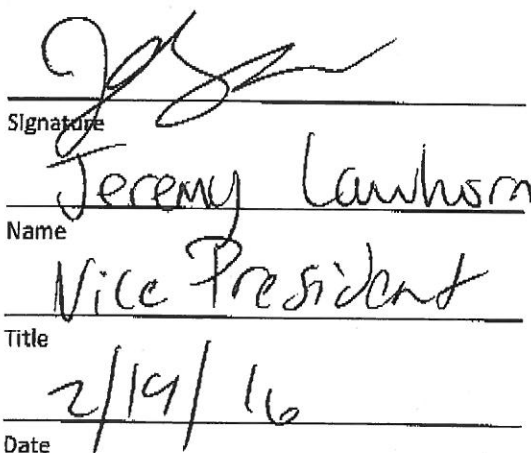 Signature
Jeremy Lawhorn
Name
Vice President
Title
2/19/16
Date